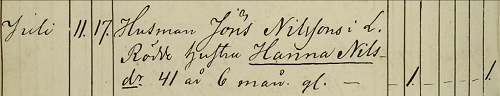 Juli 11. 17. Husman Jöns Nilssons i L.
Rödde hustru Hanna Nils-
dr 41 år 6 mån. gl. — 1. 1.